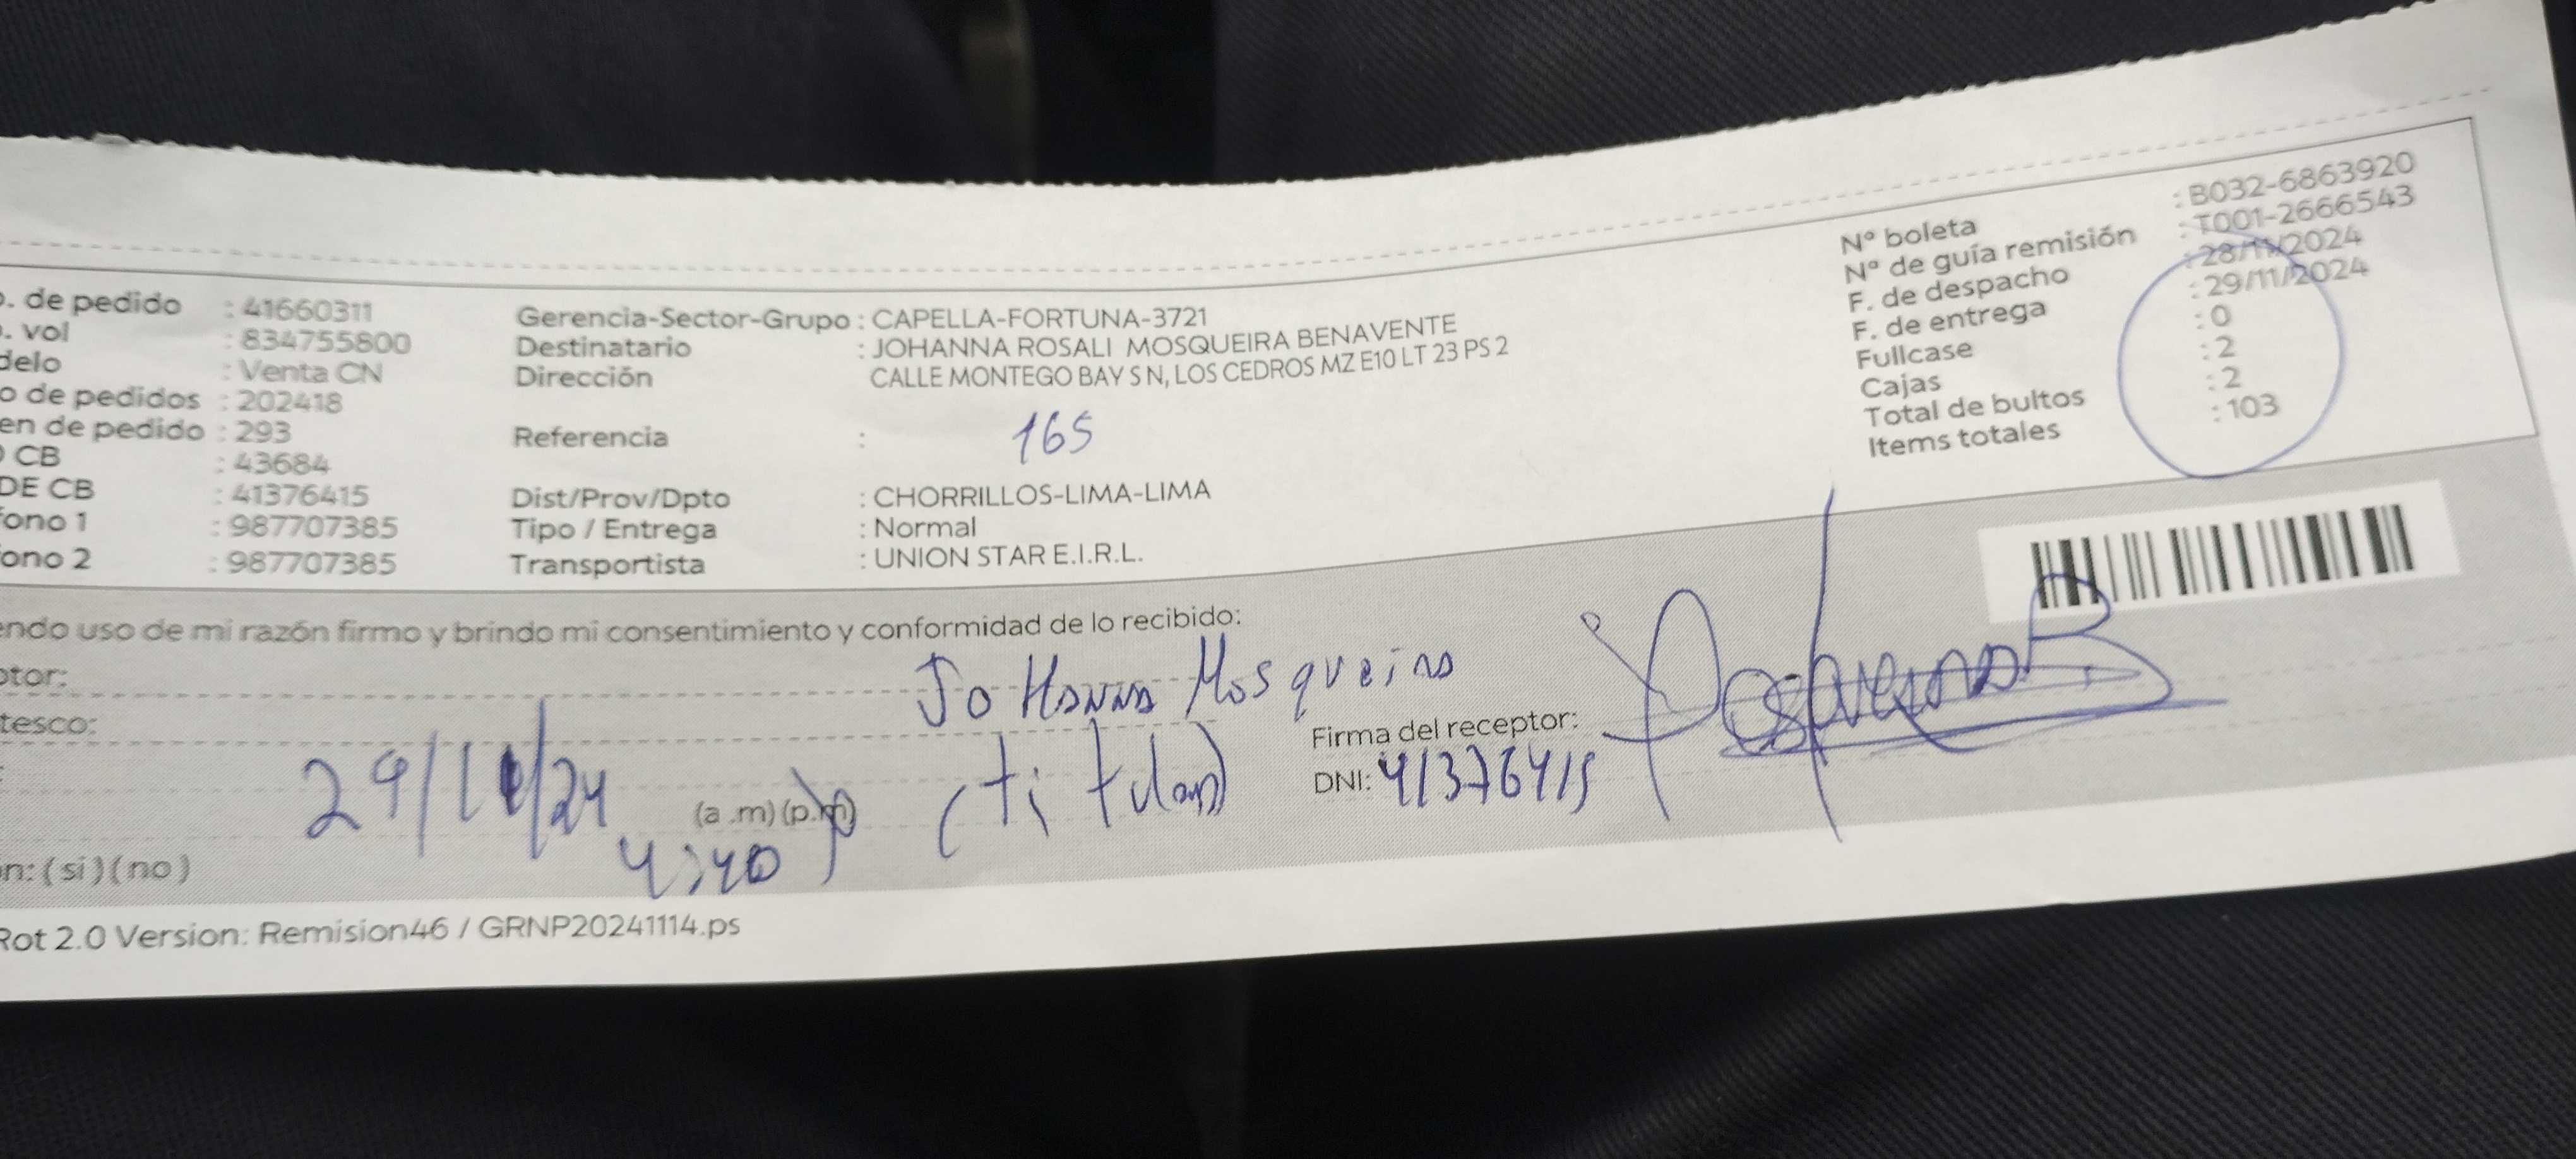 o. de pedido : 41660311
o. vol : 834755800
delo : Venta CN
o de pedidos : 202418
en de pedido : 293
O CB : 43684
DE CB : 41376415
fono 1 : 987707385
ono 2 : 987707385
Gerencia-Sector-Grupo : CAPELLA-FORTUNA-3721
Destinatario : JOHANNA ROSALI MOSQUEIRA BENAVENTE
Dirección CALLE MONTEGO BAY S N, LOS CEDROS MZ E10 LT 23 PS 2
Referencia : 165
Dist/Prov/Dpto : CHORRILLOS-LIMA-LIMA
Tipo / Entrega : Normal
Transportista : UNION STAR E.I.R.L.
Nº boleta : B032-6863920
Nº de guía remisión : T001-2666543
F. de despacho : 28/11/2024
F. de entrega : 29/11/2024
Fullcase : 0
Cajas : 2
Total de bultos : 2
Items totales : 103
endo uso de mi razón firmo y brindo mi consentimiento y conformidad de lo recibido:
ptor: JoHanna Mosqueira
tesco: (titular)
: 29/11/24 4:40 (a .m) (p.m)
Firma del receptor:
DNI: 41376415
n: ( si ) ( no )
Rot 2.0 Version: Remision46 / GRNP20241114.ps